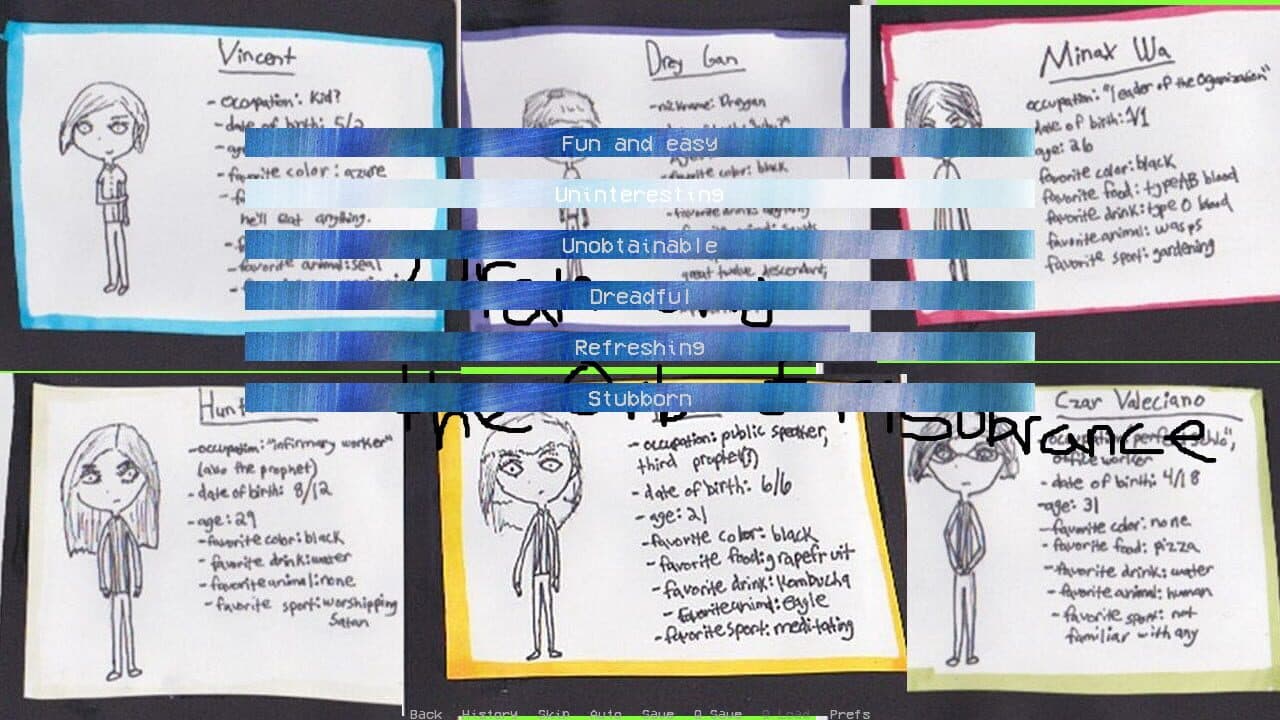 Vincent
- occupation: kid?
- date of birth: 5/2
- favorite color: azure
he'll eat anything.
- favorite animal: seal
Drey Gan
- nickname: Dreygan
- favorite color: black
great twelve descendant;
Minax Wa
occupation: "leader of the Organization"
date of birth: 1/1
age: 26
favorite color: black
favorite food: type AB blood
favorite drink: type O blood
favorite animal: wasps
favorite sport: gardening
Fun and easy
Uninteresting
Unobtainable
Dreadful
Refreshing
Stubborn
the
Hunt
- occupation: "infirmary worker"
(aka the prophet)
- date of birth: 8/12
- age: 29
- favorite color: black
- favorite drink: water
- favorite animal: none
- favorite sport: worshipping
Satan
- occupation: public speaker,
third prophet(?)
- date of birth: 6/6
- age: 21
- favorite color: black
- favorite food: grapefruit
- favorite drink: kombucha
- favorite animal: eagle
- favorite sport: meditating
Czar Valeciano
office worker
- date of birth: 4/18
- age: 31
- favorite color: none
- favorite food: pizza
- favorite drink: water
- favorite animal: human
- favorite sport: not
familiar with any
Back History Skip Auto Save Q.Save Q.Load Prefs